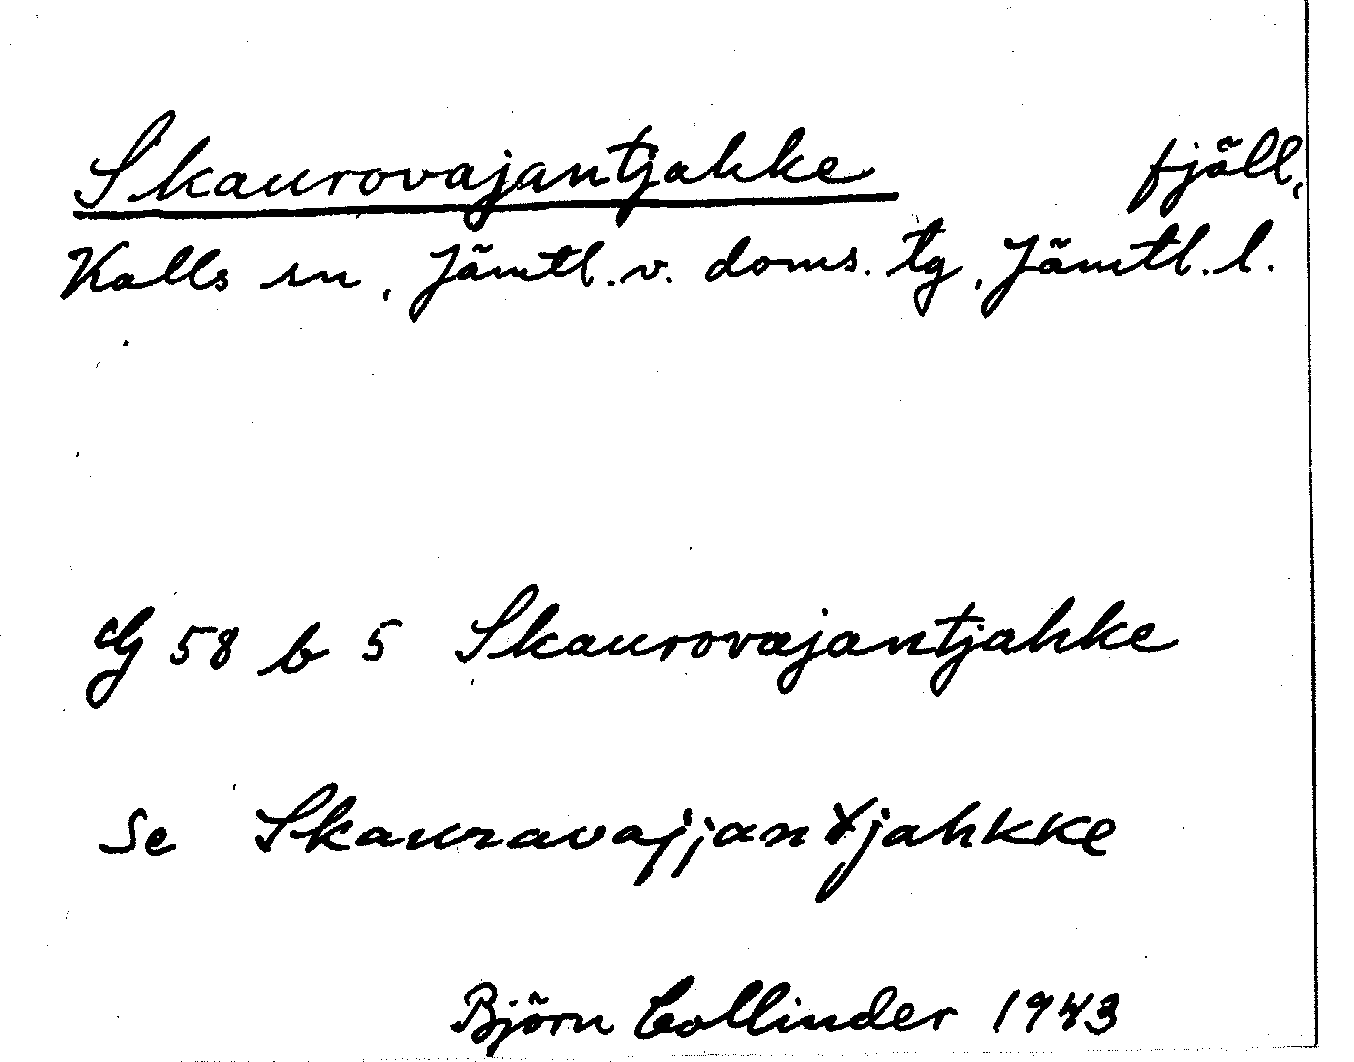 Skaurovajantjahke fjäll,
Kalls sn, Jämtl. v. doms. tg, Jämtl. l.
G 58 b 5 Skaurovajantjahke
Se Skauravajjantjahkke
Björn Collinder 1943